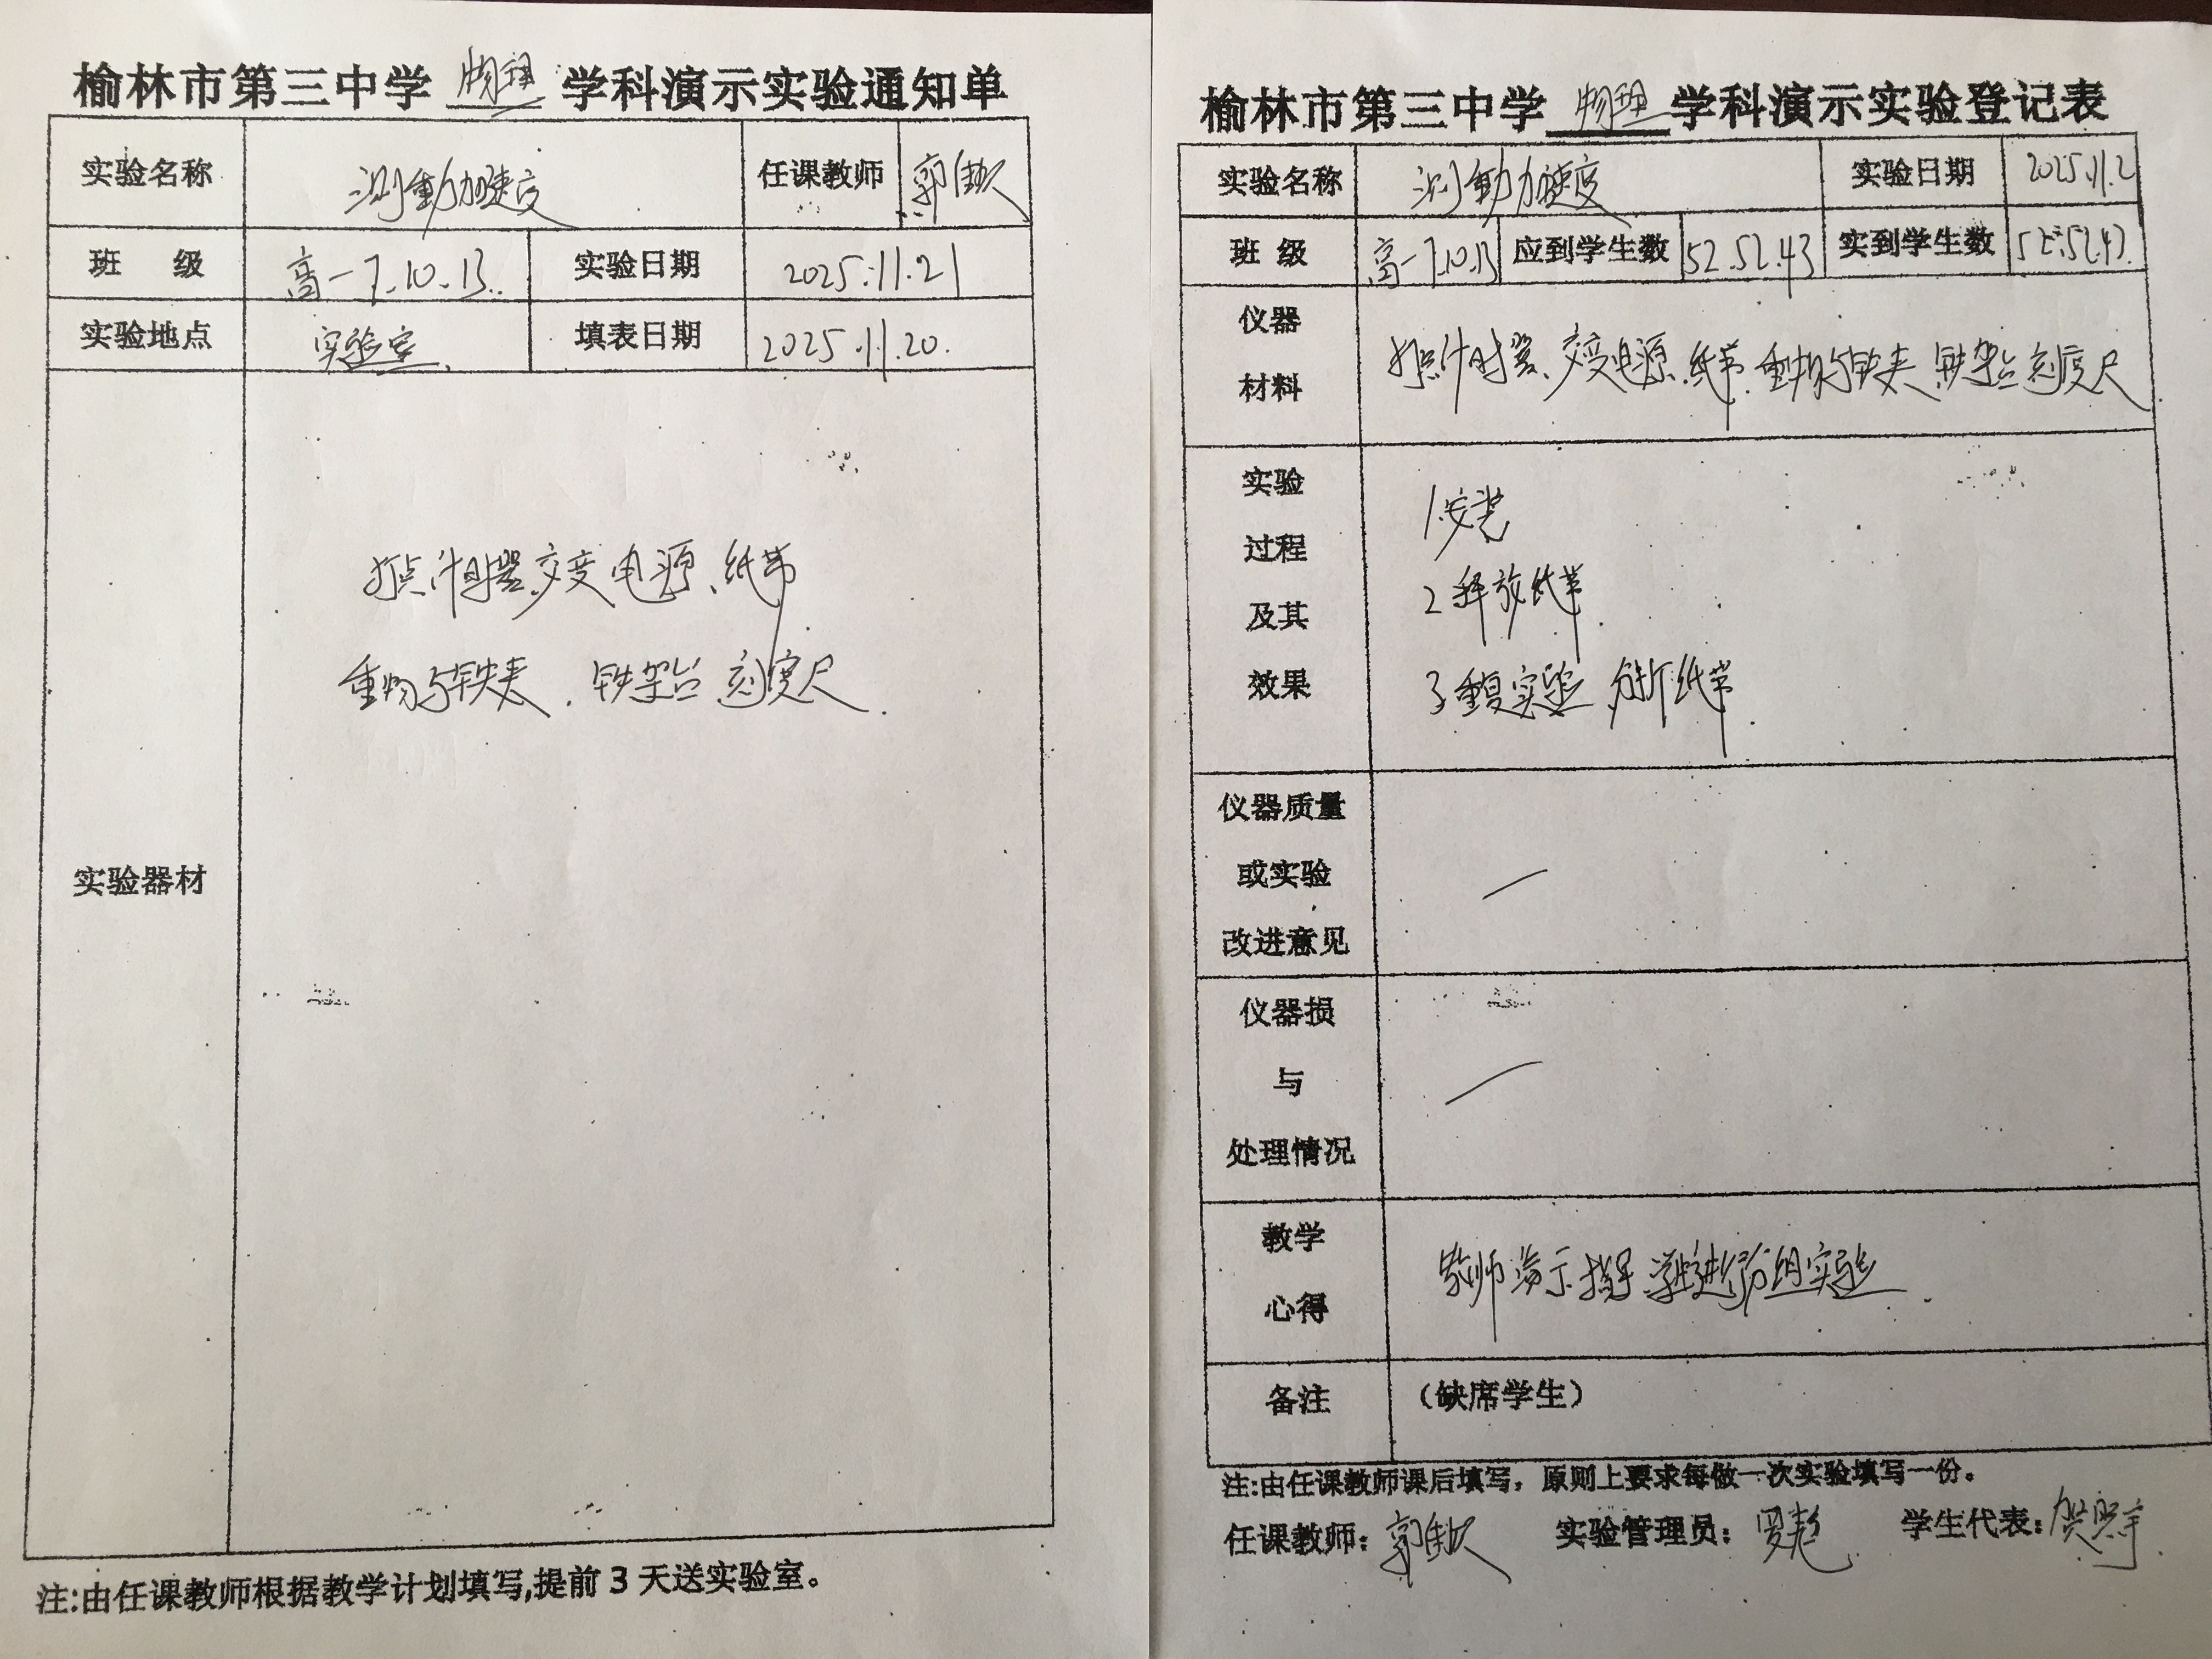 榆林市第三中学 物理 学科演示实验通知单
实验名称 测重力加速度 任课教师 郭
班 级 高一7.10.13. 实验日期 2025.11.21
实验地点 实验室. 填表日期 2025.11.20.
实验器材
打点计时器.交变电源、纸带
重物与铁夹.铁架台 刻度尺.
注:由任课教师根据教学计划填写,提前3天送实验室。
榆林市第三中学 物理 学科演示实验登记表
实验名称 测重力加速度 实验日期 2025.11.2
班 级 高一7.10.13 应到学生数 52.52.43 实到学生数 52.52.43.
仪器
材料
打点计时器、交变电源.纸带.重物与铁夹.铁架台 刻度尺
实验
过程
及其
效果
1.安装
2 释放纸带.
3 重复实验.分析纸带.
仪器质量
或实验
改进意见
仪器损
与
处理情况
教学
心得
教师演示.指导学生进行分组实验.
备注 （缺席学生）
注:由任课教师课后填写，原则上要求每做一次实验填写一份。
任课教师: 郭 实验管理员: 学生代表: 贺